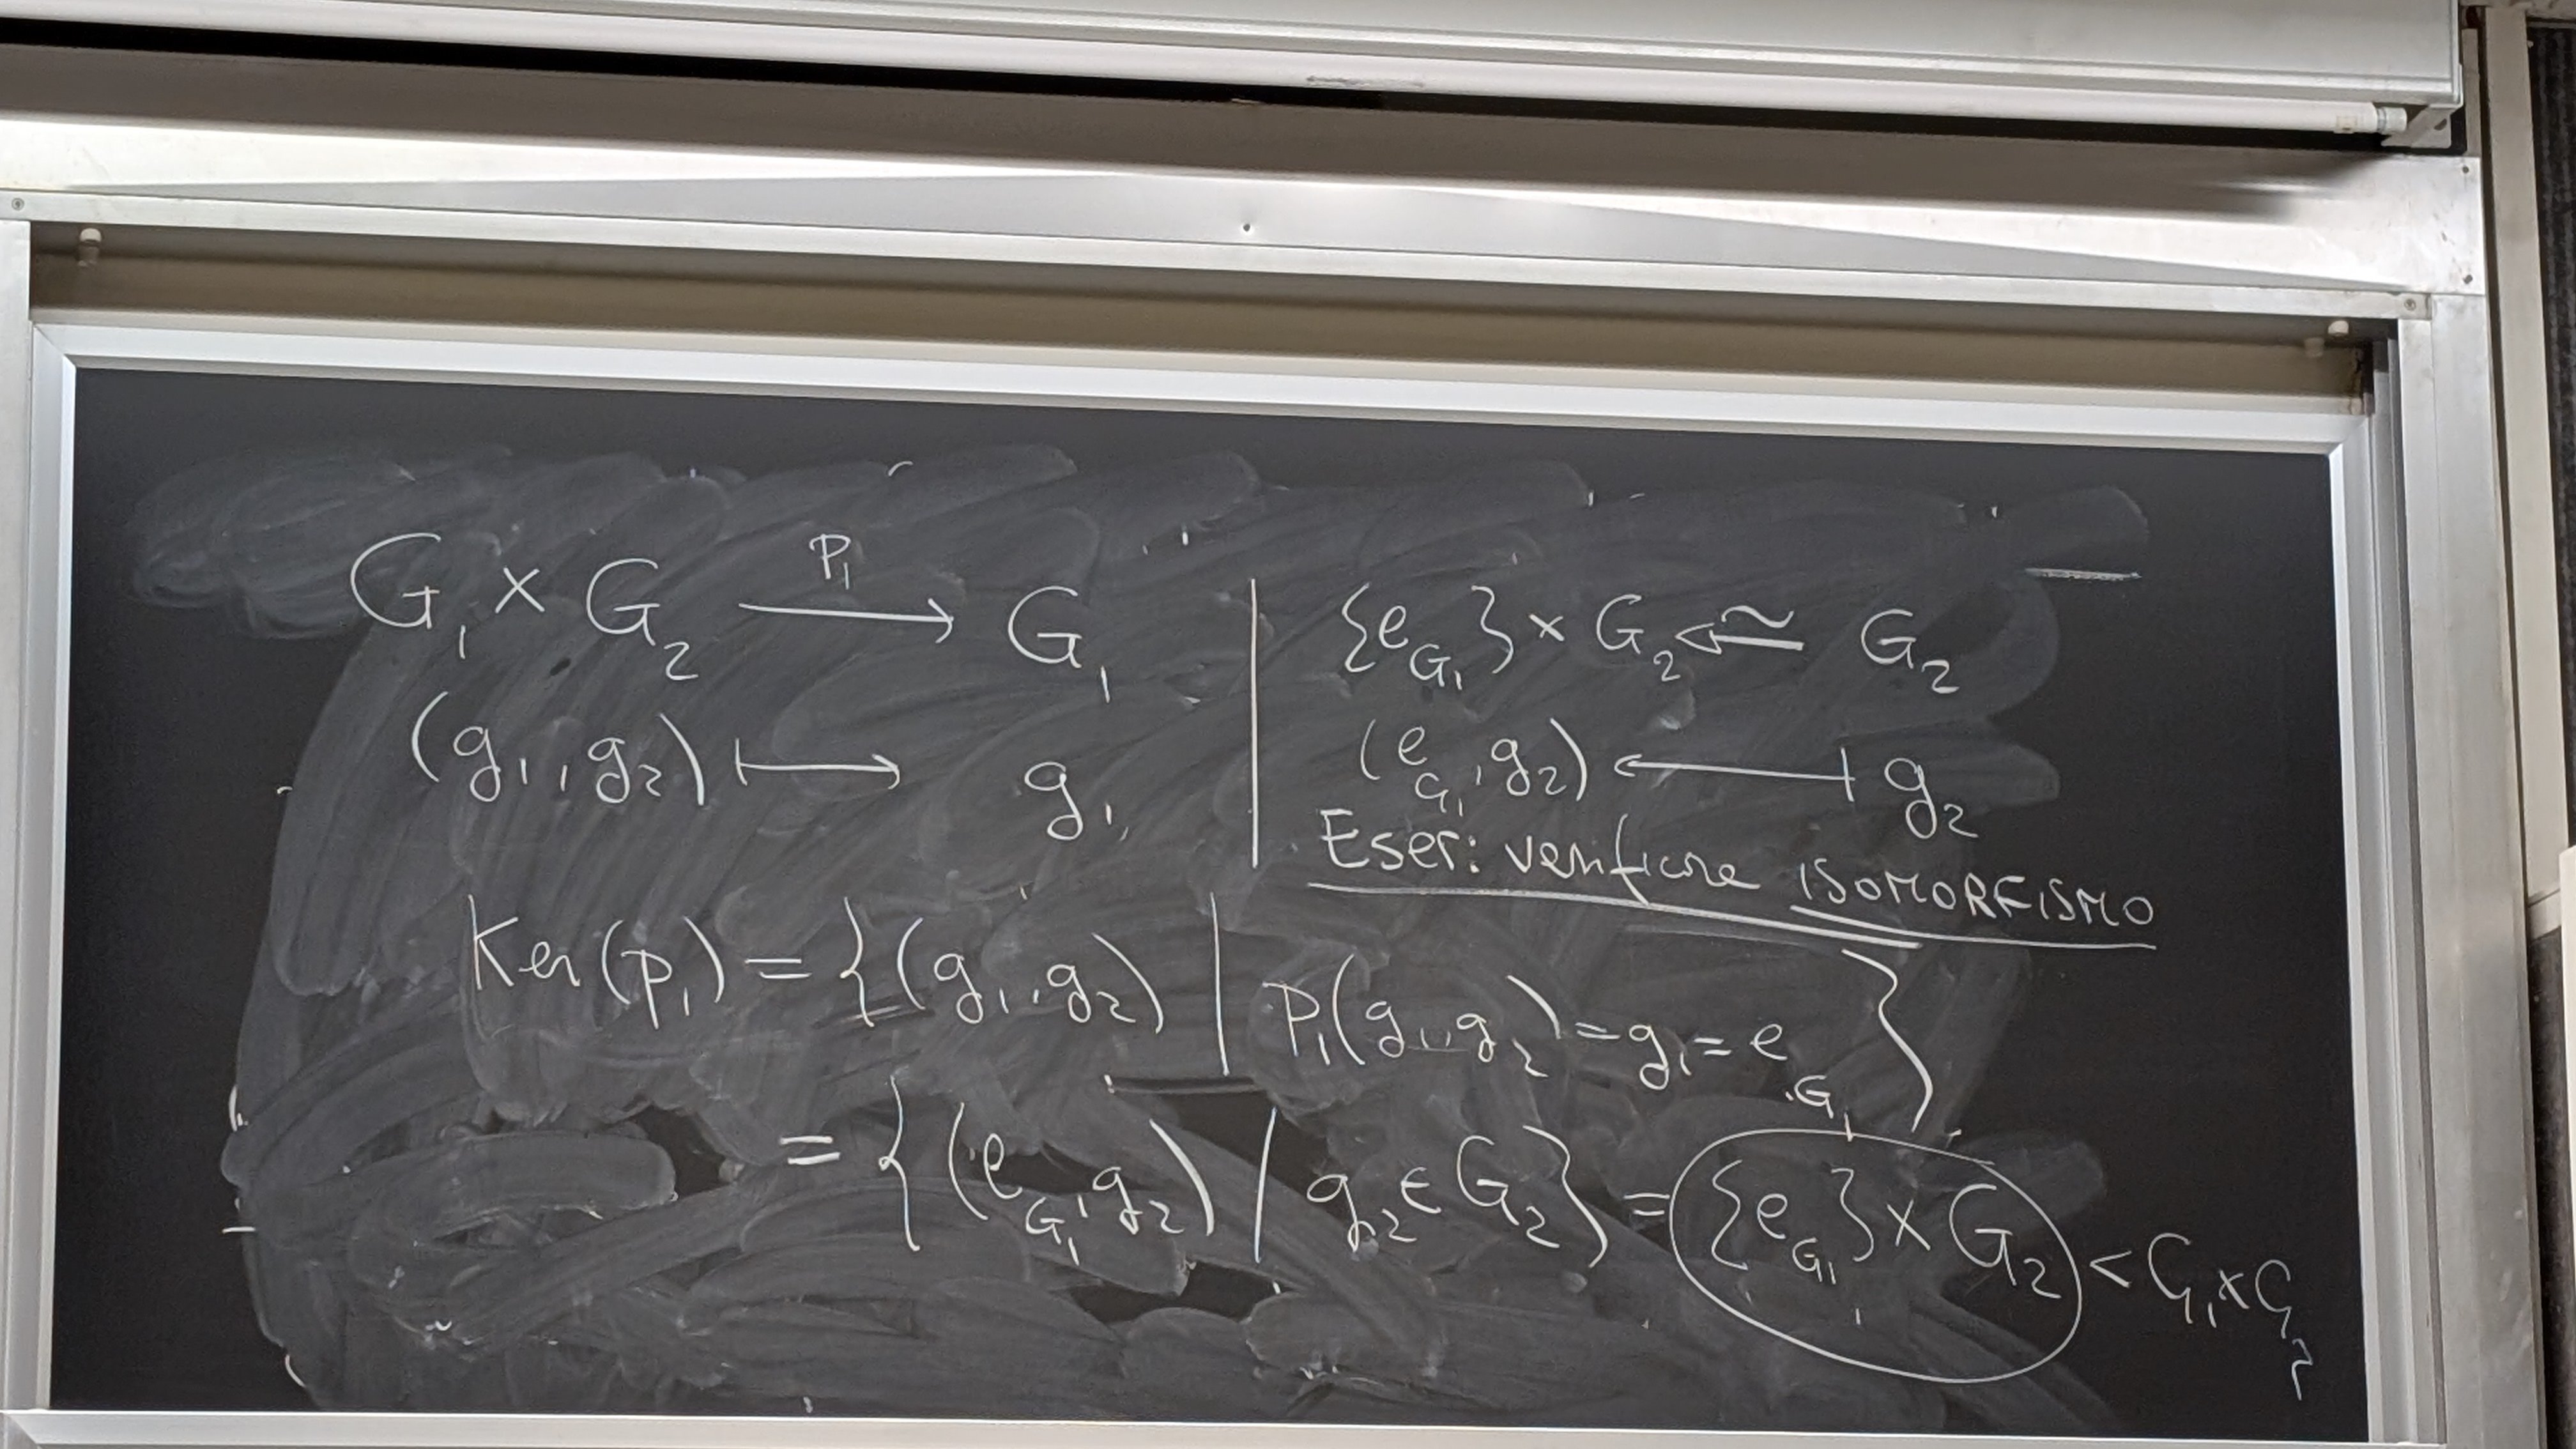 G₁ × G₂ —p₁→ G₁
(g₁, g₂) ⟼ g₁
{e_{G₁}} × G₂ ⟵~ G₂
(e_{G₁}, g₂) ⟻ g₂
Eser: verificare ISOMORFISMO
Ker(p₁) = {(g₁, g₂) | p₁(g₁, g₂) = g₁ = e_{G₁}}
= {(e_{G₁}, g₂) / g₂ ∈ G₂} = {e_{G₁}} × G₂ < G₁ × G₂